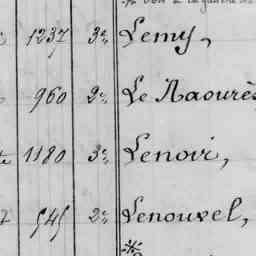 1237 3e Lemy,
960 2e Le Raourès
1180 3e Lenoir,
545 2e Lenouvel,